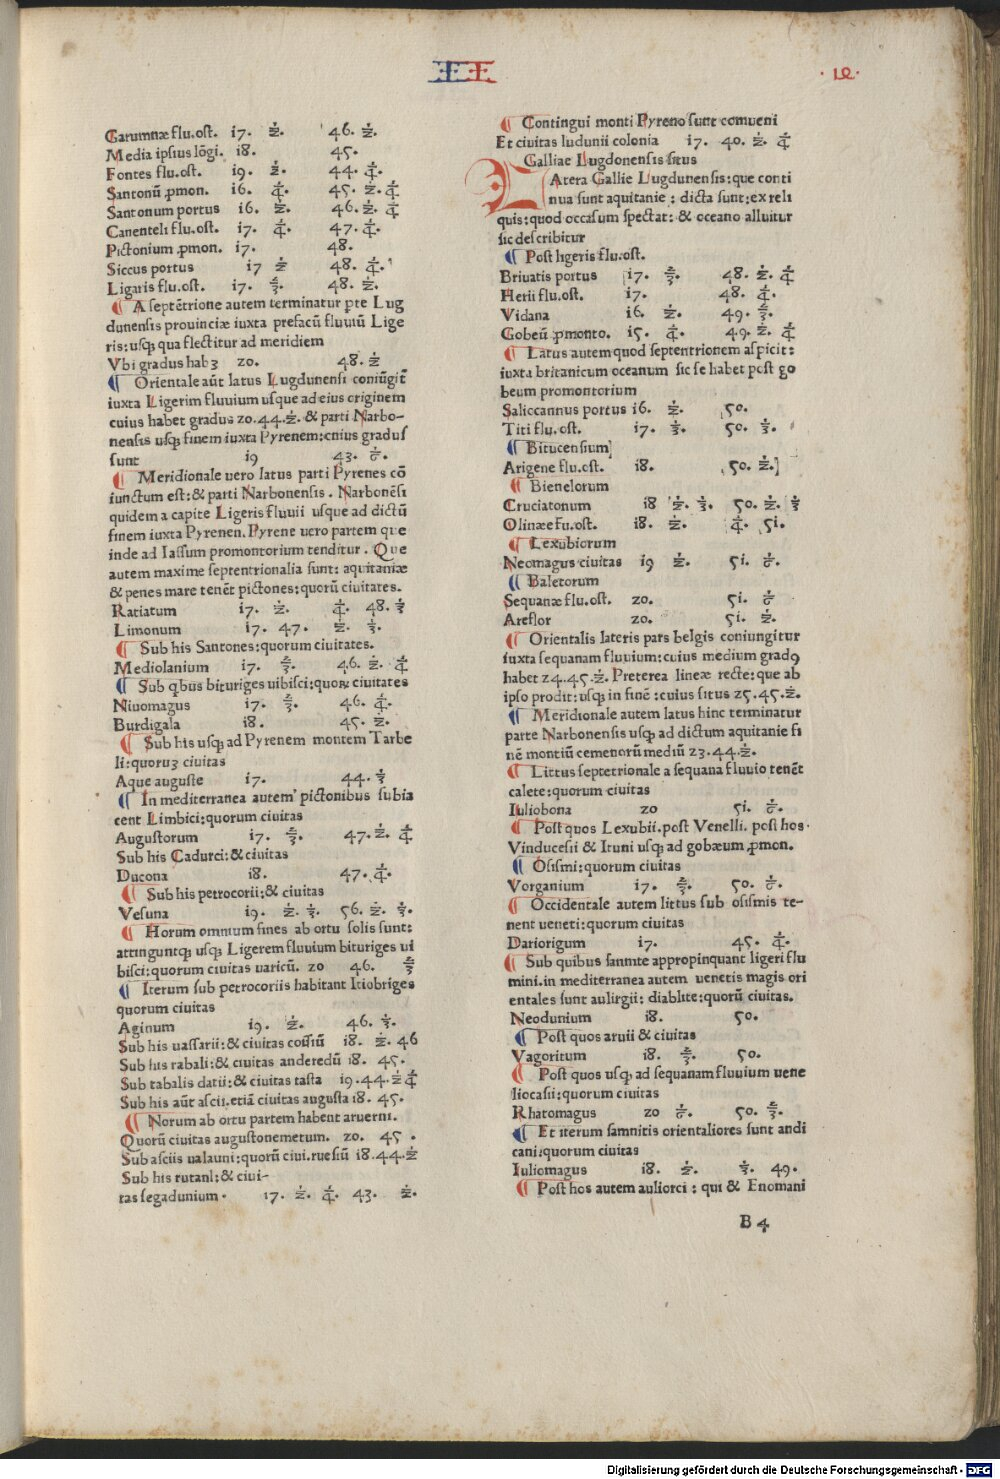 II
Garumnæ flu.ost. i7. ½. 46. ½.
Media ipsius lōgi. i8. 45.
Fontes flu.ost. i9. ½. 44. ¼.
Santonū ꝓmon. i6. ¼. 45. ½. ¼
Santonum portus i6. ½. 46. ½. ¼
Canenteli flu.ost. i7. ¼. 47. ¼.
Pictonium ꝓmon. i7. 48.
Siccus portus i7 ½ 48. ¼.
Ligaris flu.ost. i7. ⅔. 48. ½.
¶ A septētrione autem terminatur ꝑte Lug
dunensis prouinciæ iuxta prefacū fluuiū Lige
ris: usqꝫ qua flectitur ad meridiem
Vbi gradus habꝫ 20. 48. ½
¶ Orientale aūt latus Lugdunensi coniūgit̄
iuxta Ligerim fluuium usque ad eius originem
cuius habet gradus 20.44.½. & parti Narbo-
nensis usqꝫ finem iuxta Pyrenem: cuius gradus
sunt i9 43. ⅙.
¶ Meridionale uero latus parti Pyrenes cō
iunctum est: & parti Narbonensis. Narbonēsi
quidem a capite Ligeris fluuii usque ad dictū
finem iuxta Pyrenen. Pyrene uero partem que
inde ad Iassum promontorium tenditur. Que
autem maxime septentrionalia sunt: aquitaniæ
& penes mare tenēt pictones: quorū ciuitates.
Ratiatum i7. ½. ¼. 48. ⅓
Limonum i7. 47. ½. ⅓.
¶ Sub his Santones: quorum ciuitates.
Mediolanium i7. ⅔. 46. ½. ¼
¶ Sub qbus bituriges uibisci: quoꝝ ciuitates
Niuomagus i7. ⅔. 46. ¼.
Burdigala i8. 45. ½.
¶ Sub his usqꝫ ad Pyrenem montem Tarbe
li: quoruꝫ ciuitas
Aque auguste i7. 44. ⅓
¶ In mediterranea autem pictonibus subia
cent Limbici: quorum ciuitas
Augustorum i7. ⅔. 47. ½. ¼
Sub his Cadurci: & ciuitas
Ducona i8. 47. ¼.
¶ Sub his petrocorii: & ciuitas
Vesuna i9. ½. ⅓. 56. ½. ⅓.
¶ Horum omnium fines ab ortu solis sunt:
attinguntqꝫ usqꝫ Ligerem fluuium bituriges ui
bisci: quorum ciuitas uaricū. 20 46. ⅔
¶ Iterum sub petrocoriis habitant Itiobriges
quorum ciuitas
Aginum i9. ½. 46. ⅓.
Sub his uassarii: & ciuitas cossiū i8. ½. 46
Sub his rabali: & ciuitas anderedū i8. 45.
Sub tabalis datii: & ciuitas tasta i9.44.½ ¼
Sub his aūt ascii. etiā ciuitas augusta i8. 45.
¶ Norum ab ortu partem habent aruerni.
Quorū ciuitas augustonemetum. 20. 45.
Sub asciis ualauni: quorū ciui. ruesiū i8.44.½
Sub his rutani: & ciui-
tas segadunium. i7. ½. ¼. 43. ½.
¶ Contingui monti Pyreno sunt conueni
Et ciuitas luduníi colonia i7. 40. ½. ¼
Galliae Lugdonensis situs
LAtera Gallie Lugdunensis: que conti
nua sunt aquitanie; dicta sunt: ex reli
quis: quod occasum spectat: & oceano alluitur
sic describitur
¶ Post ligeris flu.ost.
Briuatis portus i7. ⅔. 48. ½. ¼
Herii flu.ost. i7. 48. ¼.
Vidana i6. ½. 49. ⅔.
Gobeū ꝓmonto. i5. ¼. 49. ½. ¼
¶ Latus autem quod septentrionem aspicit:
iuxta britanicum oceanum sic se habet post go
beum promontorium
Saliccannus portus i6. ½. 50.
Titi flu.ost. i7. ⅓. 50. ⅓.
¶ Bitucensium
Arigene flu.ost. i8. 50. ½.
¶ Bienelorum
Cruciatonum i8 ½. ⅓. 50. ½. ⅓
Olinæ fu.ost. i8. ½. ¼. 5i.
¶ Lexubiorum
Neomagus ciuitas i9 ½. 5i. ⅙.
¶ Baletorum
Sequanæ flu.ost. 20. 5i. ⅙
Areflor 20. 5i. ½.
¶ Orientalis lateris pars belgis coniungitur
iuxta sequanam fluuium: cuius medium gradꝰ
habet 24.45.½. Preterea lineæ recte: que ab
ipso prodit: usqꝫ in finē: cuius situs 25.45.½.
¶ Meridionale autem latus hinc terminatur
parte Narbonensis usqꝫ ad dictum aquitanie fi
nē montiū cemenorū mediū 23.44.½.
¶ Littus septētrionale a sequana fluuio tenēt
calete: quorum ciuitas
Iuliobona 20 5i. ⅙.
¶ Post quos Lexubii. post Venelli. post hos
Vinducesii & Ituni usqꝫ ad gobæum ꝓmon.
¶ Osismi: quorum ciuitas
Vorganium i7. ⅔. 50. ⅙.
¶ Occidentale autem littus sub osismis te-
nent ueneti: quorum ciuitas
Dariorigum i7. 45. ¼.
¶ Sub quibus samnite appropinquant ligeri flu
mini. in mediterranea autem uenetis magis ori
entales sunt aulirgii; diablite: quorū ciuitas.
Neodunium i8. 50.
¶ Post quos aruii & ciuitas
Vagoritum i8. ⅔. 50.
¶ Post quos usqꝫ ad sequanam fluuium uene
liocasii: quorum ciuitas
Rhatomagus 20 ⅙. 50. ⅔.
¶ Et iterum samnitis orientaliores sunt andi
cani: quorum ciuitas
Iuliomagus i8. ½. ⅓. 49.
¶ Post hos autem auliorci: qui & Enomani
B 4
Digitalisierung gefördert durch die Deutsche Forschungsgemeinschaft - DFG